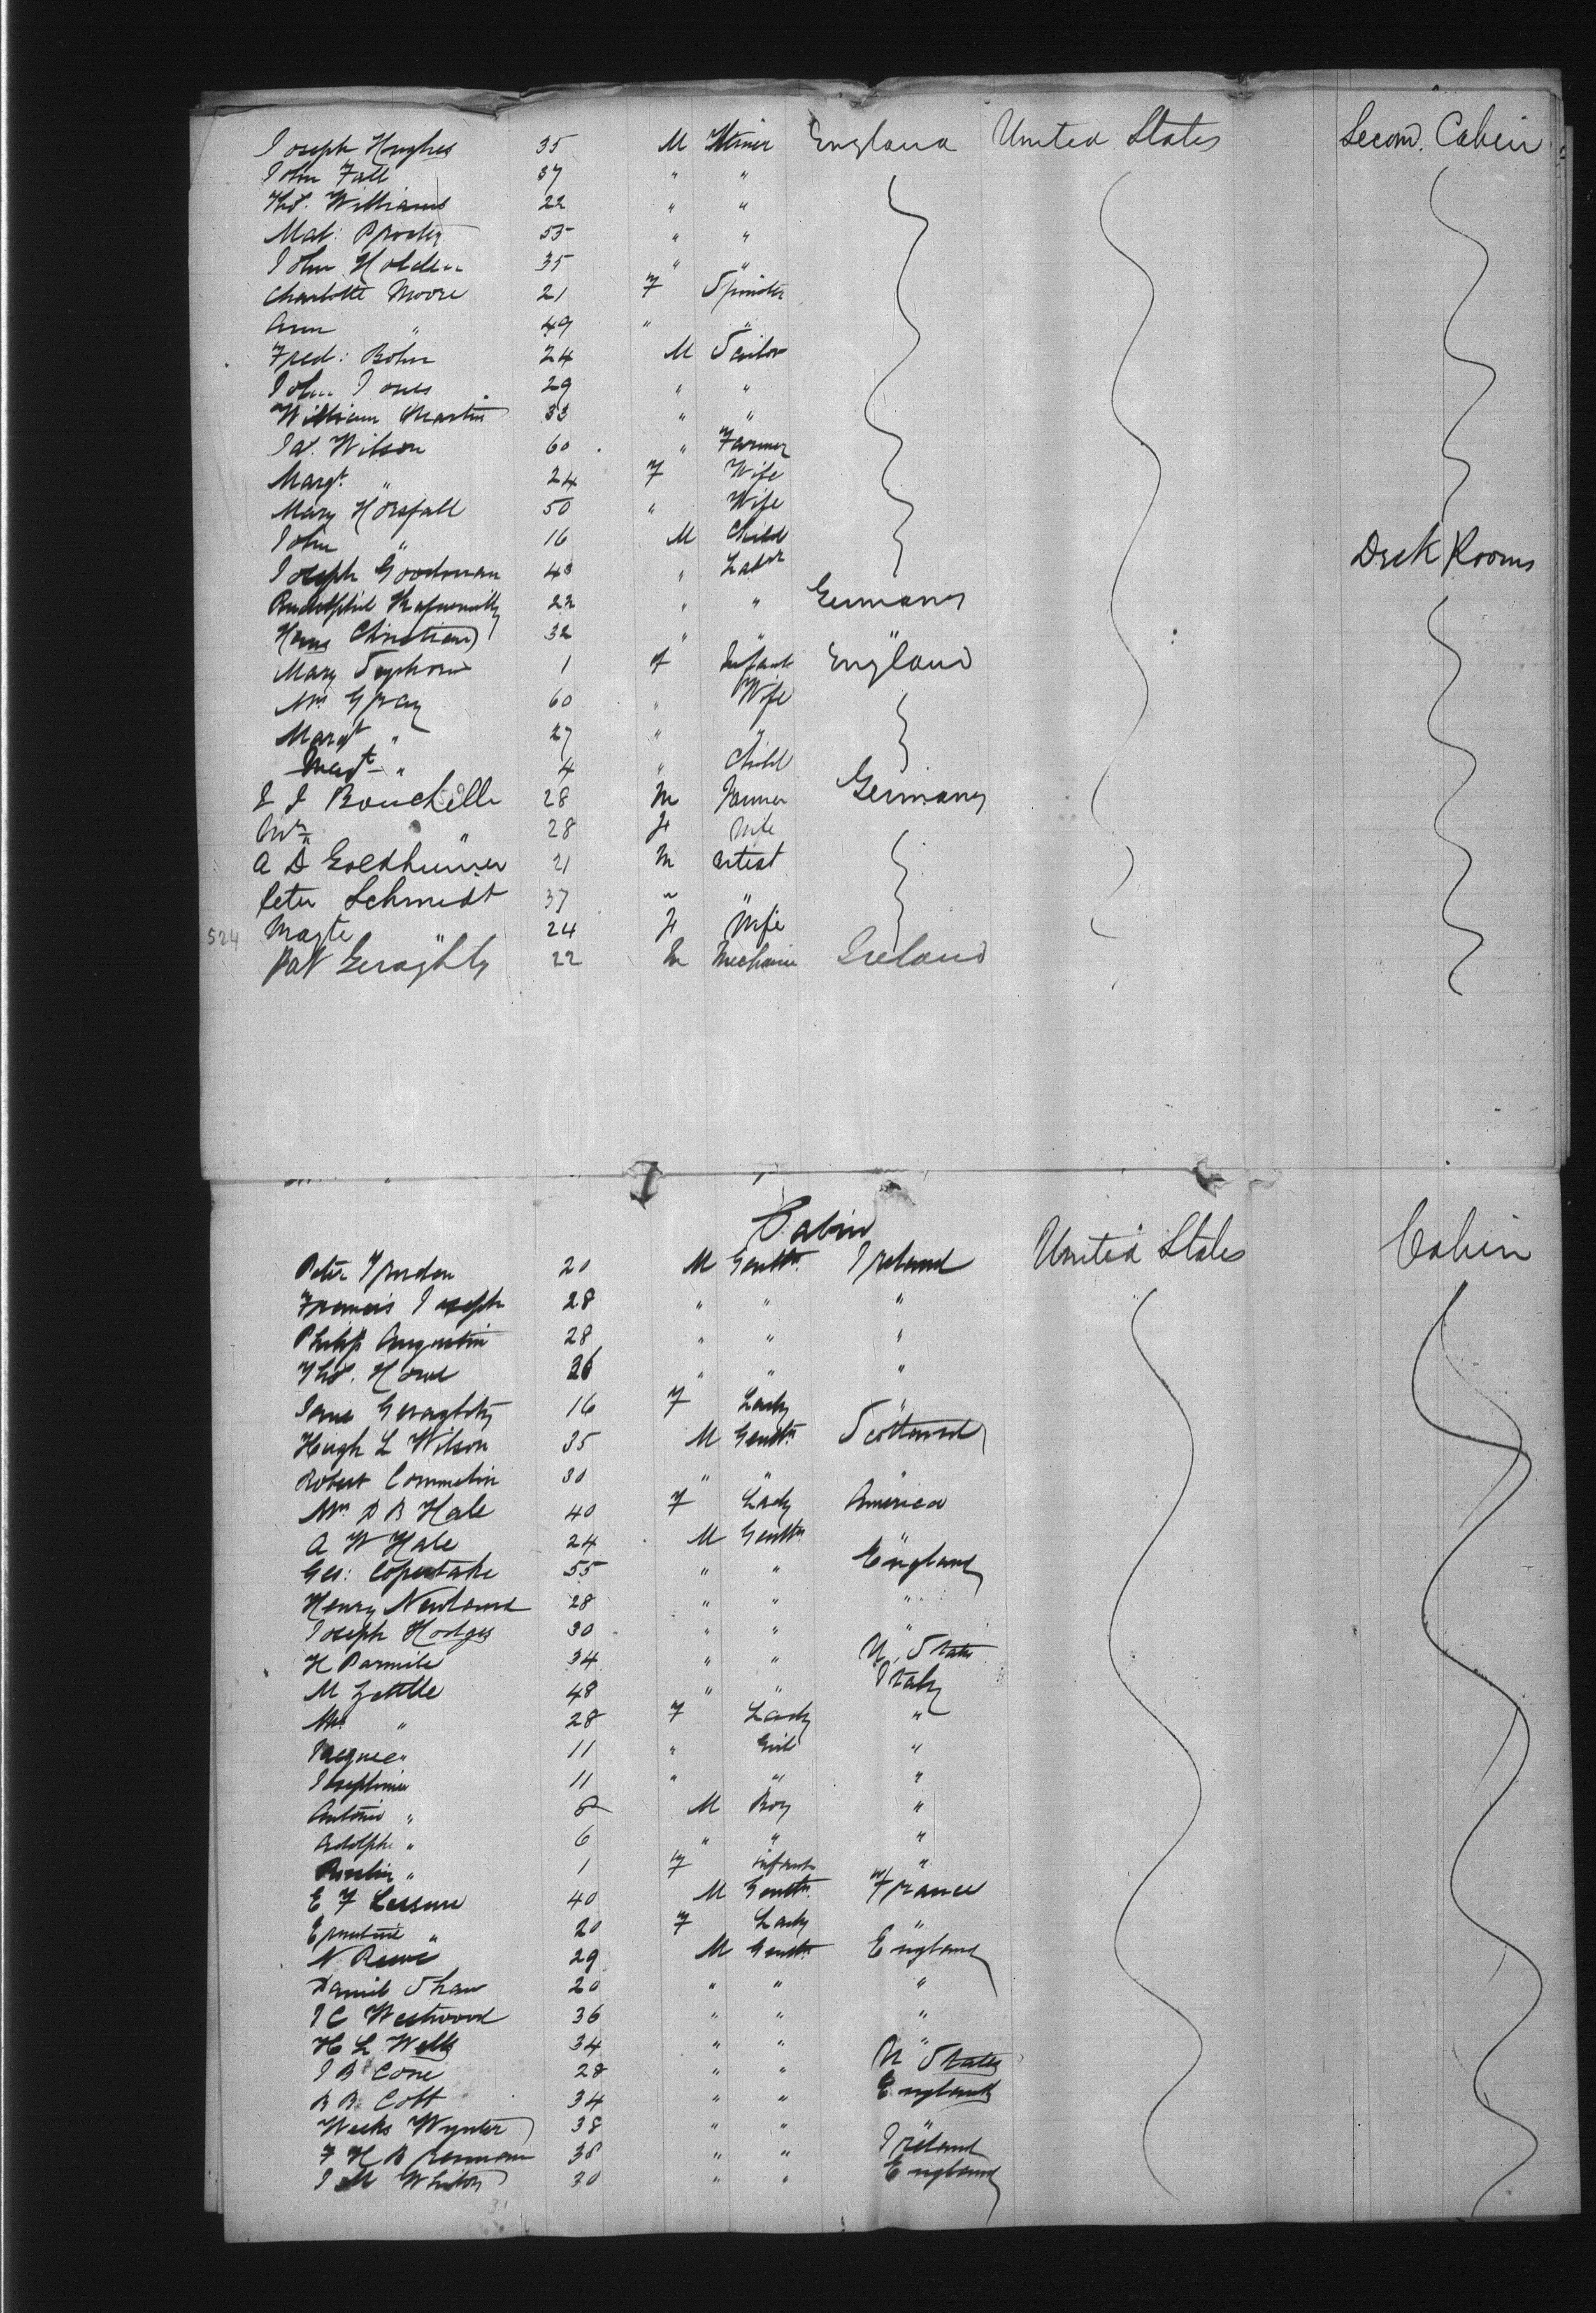 Joseph Hughes 35 M Miner England United States Second Cabin
John Fall 37 " "
Thos. Williams 22 " "
Mat: Procter 55 " "
John Holden 35 " "
Charlotte Moore 21 F Spinster
Ann " 49 " "
Fred: Bohn 24 M Sailor
John Jones 29 " "
William Martin 33 " "
Jas. Wilson 60 " Farmer
Margt. " 24 F Wife
Mary Horsfall 50 " Wife
John " 16 M Child
Joseph Goodman 48 " Labr Deck Rooms
22 " " Germany
Hans Christian 32 " " "
Mary 1 F Infant England
Mrs Gray 60 " Wife
Margt " 27 " "
Margt " 4 " Child
J J Bouchelle 28 M Farmer Germany
Mrs " 28 F Wife
A D Goldheimer 21 M Artist
Peter Schmidt 37 " "
524 Magte " 24 F Wife
Pat Geraghty 22 M Mechanic Ireland
Cabin
Peter 20 M Gentn. Ireland United States Cabin
Francis Joseph 28 " " "
Philip Augustin 28 " " "
Thos. Howe 26 " " "
Jane Geraghty 16 F Lady "
Hugh L Wilson 35 M Gentn. Scotland
Robert Commelin 30 " " "
Mrs D B Hale 40 F Lady America
A W Hale 24 M Gentn "
Geo: Copestake 55 " " England
Henry Newland 28 " " "
Joseph Hodges 30 " " "
H Parmile 34 " " U. States
M Zettlle 48 " " Italy
Mrs " 28 F Lady "
" 11 " Girl "
Josephine 11 " " "
Antonio " 8 M Boy "
Adolphe " 6 " " "
" 1 F Infant "
E F 40 M Gentn. France
Ernestine " 20 F Lady "
N Reeve 29 M Gentn. England
Daniel Shaw 20 " " "
J C Westwood 36 " " "
H L Wells 34 " " "
J B Cone 28 " " U States
B B Cott 34 " " England
Weeks Wynter 38 " " "
F H B 38 " " Ireland
J M Whiton 30 " " England
31